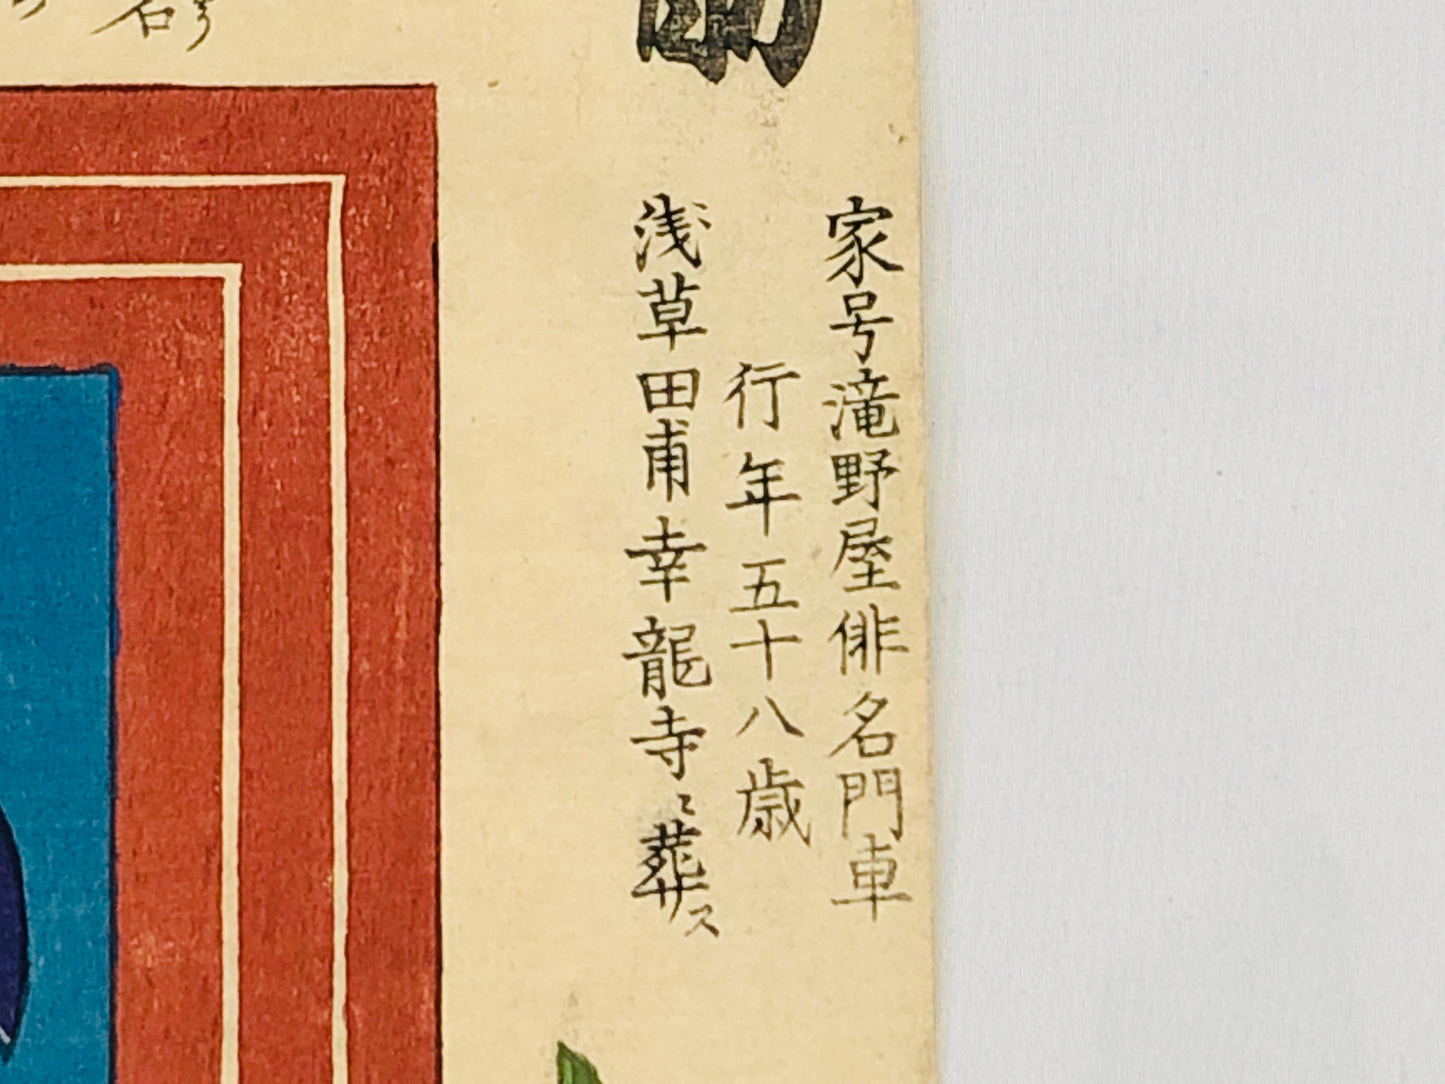 家号滝野屋俳名門車
行年五十八歳
浅草田甫幸龍寺ニ葬ス